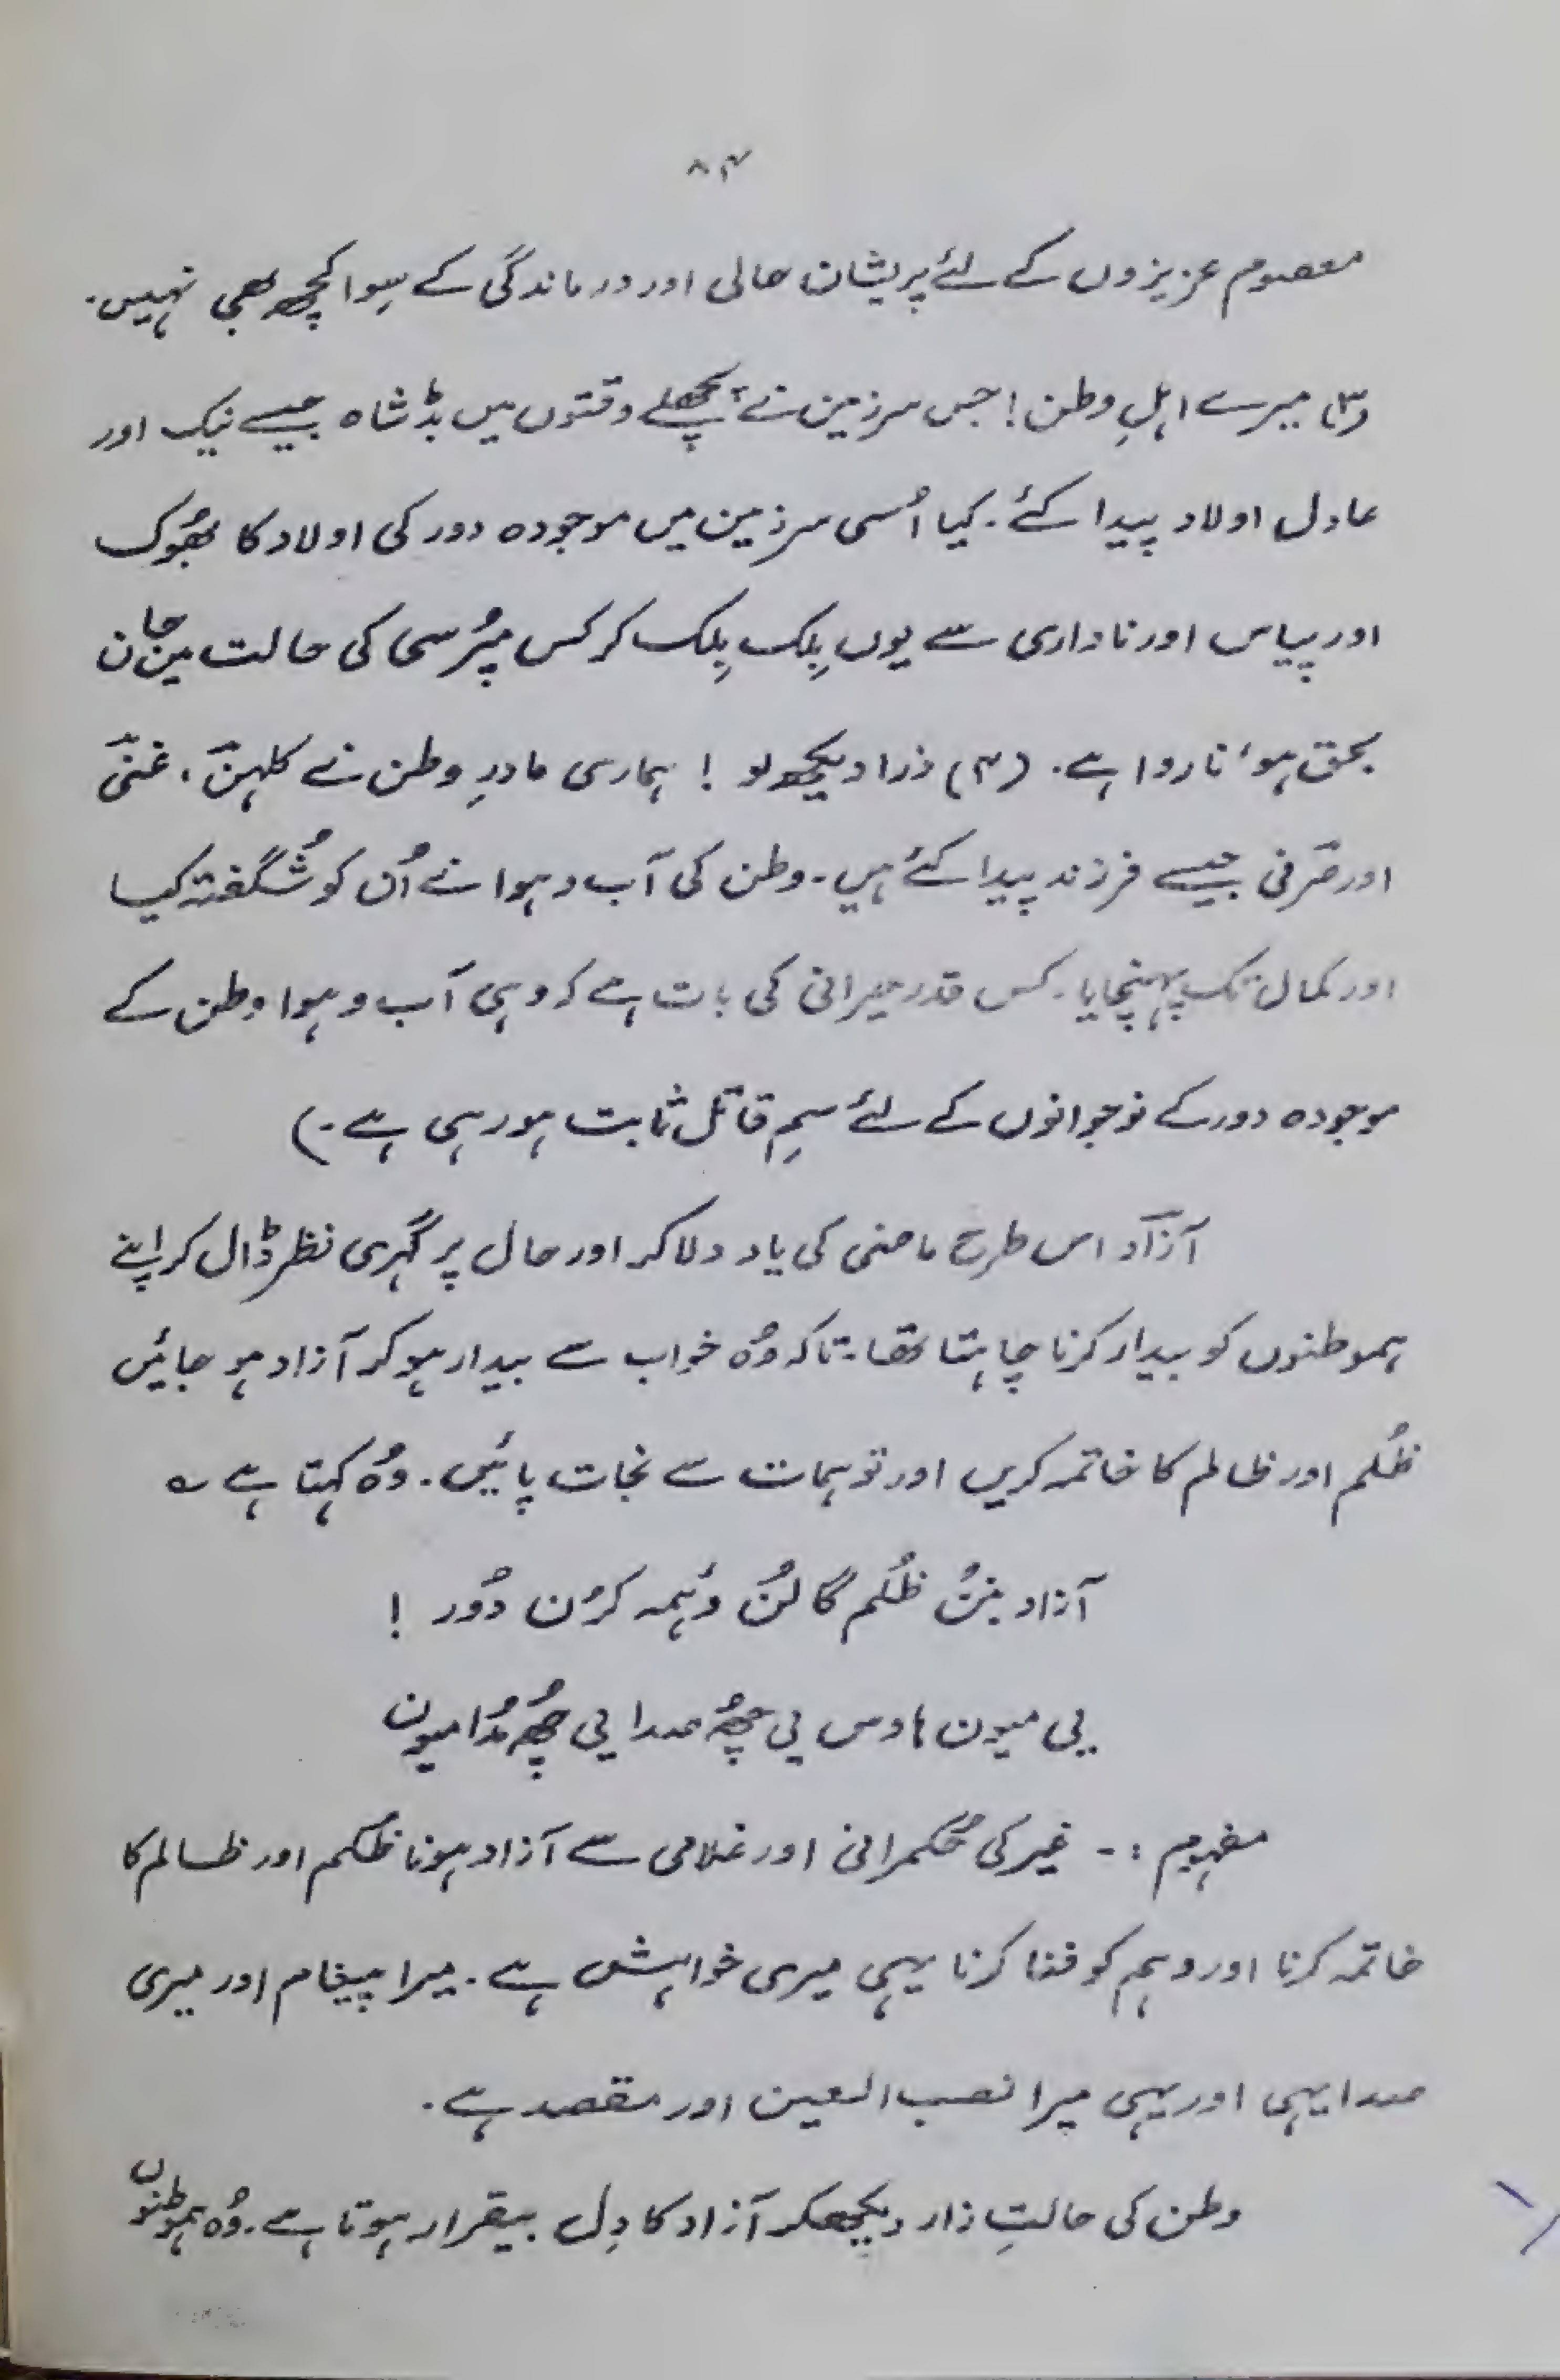 ۸۴
معصوم عزیزوں کے لئے پریشان حالی اور درماندگی کے سِوا کچھ بھی نہیں۔
(۳) میرے اہلِ وطن! جس سرزمین نے پچھلے وقتوں میں بڈشاہ جیسے نیک اور
عادل اولاد پیدا کئے۔ کیا اُسی سرزمین میں موجودہ دور کی اولاد کا بھُوک
اور پیاس اور ناداری سے یوں بِلک بِلک کر کس مپُرسی کی حالت میں جان
بحق ہو، ناروا ہے۔ (۴) ذرا دیکھو لو ! ہماری مادرِ وطن نے کلہن، غنی
اور صرفی جیسے فرزند پیدا کئے ہیں۔ وطن کی آب و ہوا نے اُن کو شُگفتہ کیا
اور کمال تک پہنچایا۔ کس قدر حیرانی کی بات ہے کہ وہی آب و ہوا وطن کے
موجودہ دور کے نوجوانوں کے لئے سمِ قاتل ثابت ہو رہی ہے۔)
آزاد اس طرح ماضی کی یاد دلا کر اور حال پر گہری نظر ڈال کر اپنے
ہموطنوں کو بیدار کرنا چاہتا تھا۔ تاکہ وُہ خواب سے بیدار ہو کر آزاد ہو جائیں
ظُلم اور ظالم کا خاتمہ کریں اور توہمات سے نجات پائیں۔ وُہ کہتا ہے ؎
آزاد بنُن ظُلم گالُن وَہمہ کرُن دُور !
یی میون ہاوس یی چھُ صدا یی چھُ مُدا میون
مفہوم :- غیر کی حُکمرانی اور غلامی سے آزاد ہونا ظُلم اور ظالم کا
خاتمہ کرنا اور وہم کو فنا کرنا یہی میری خواہش ہے۔ میرا پیغام اور میری
صدا یہی اور یہی میرا نصب العین اور مقصد ہے۔
وطن کی حالتِ زار دیکھکر آزاد کا دِل بیقرار ہوتا ہے۔ وُہ ہموطنوں